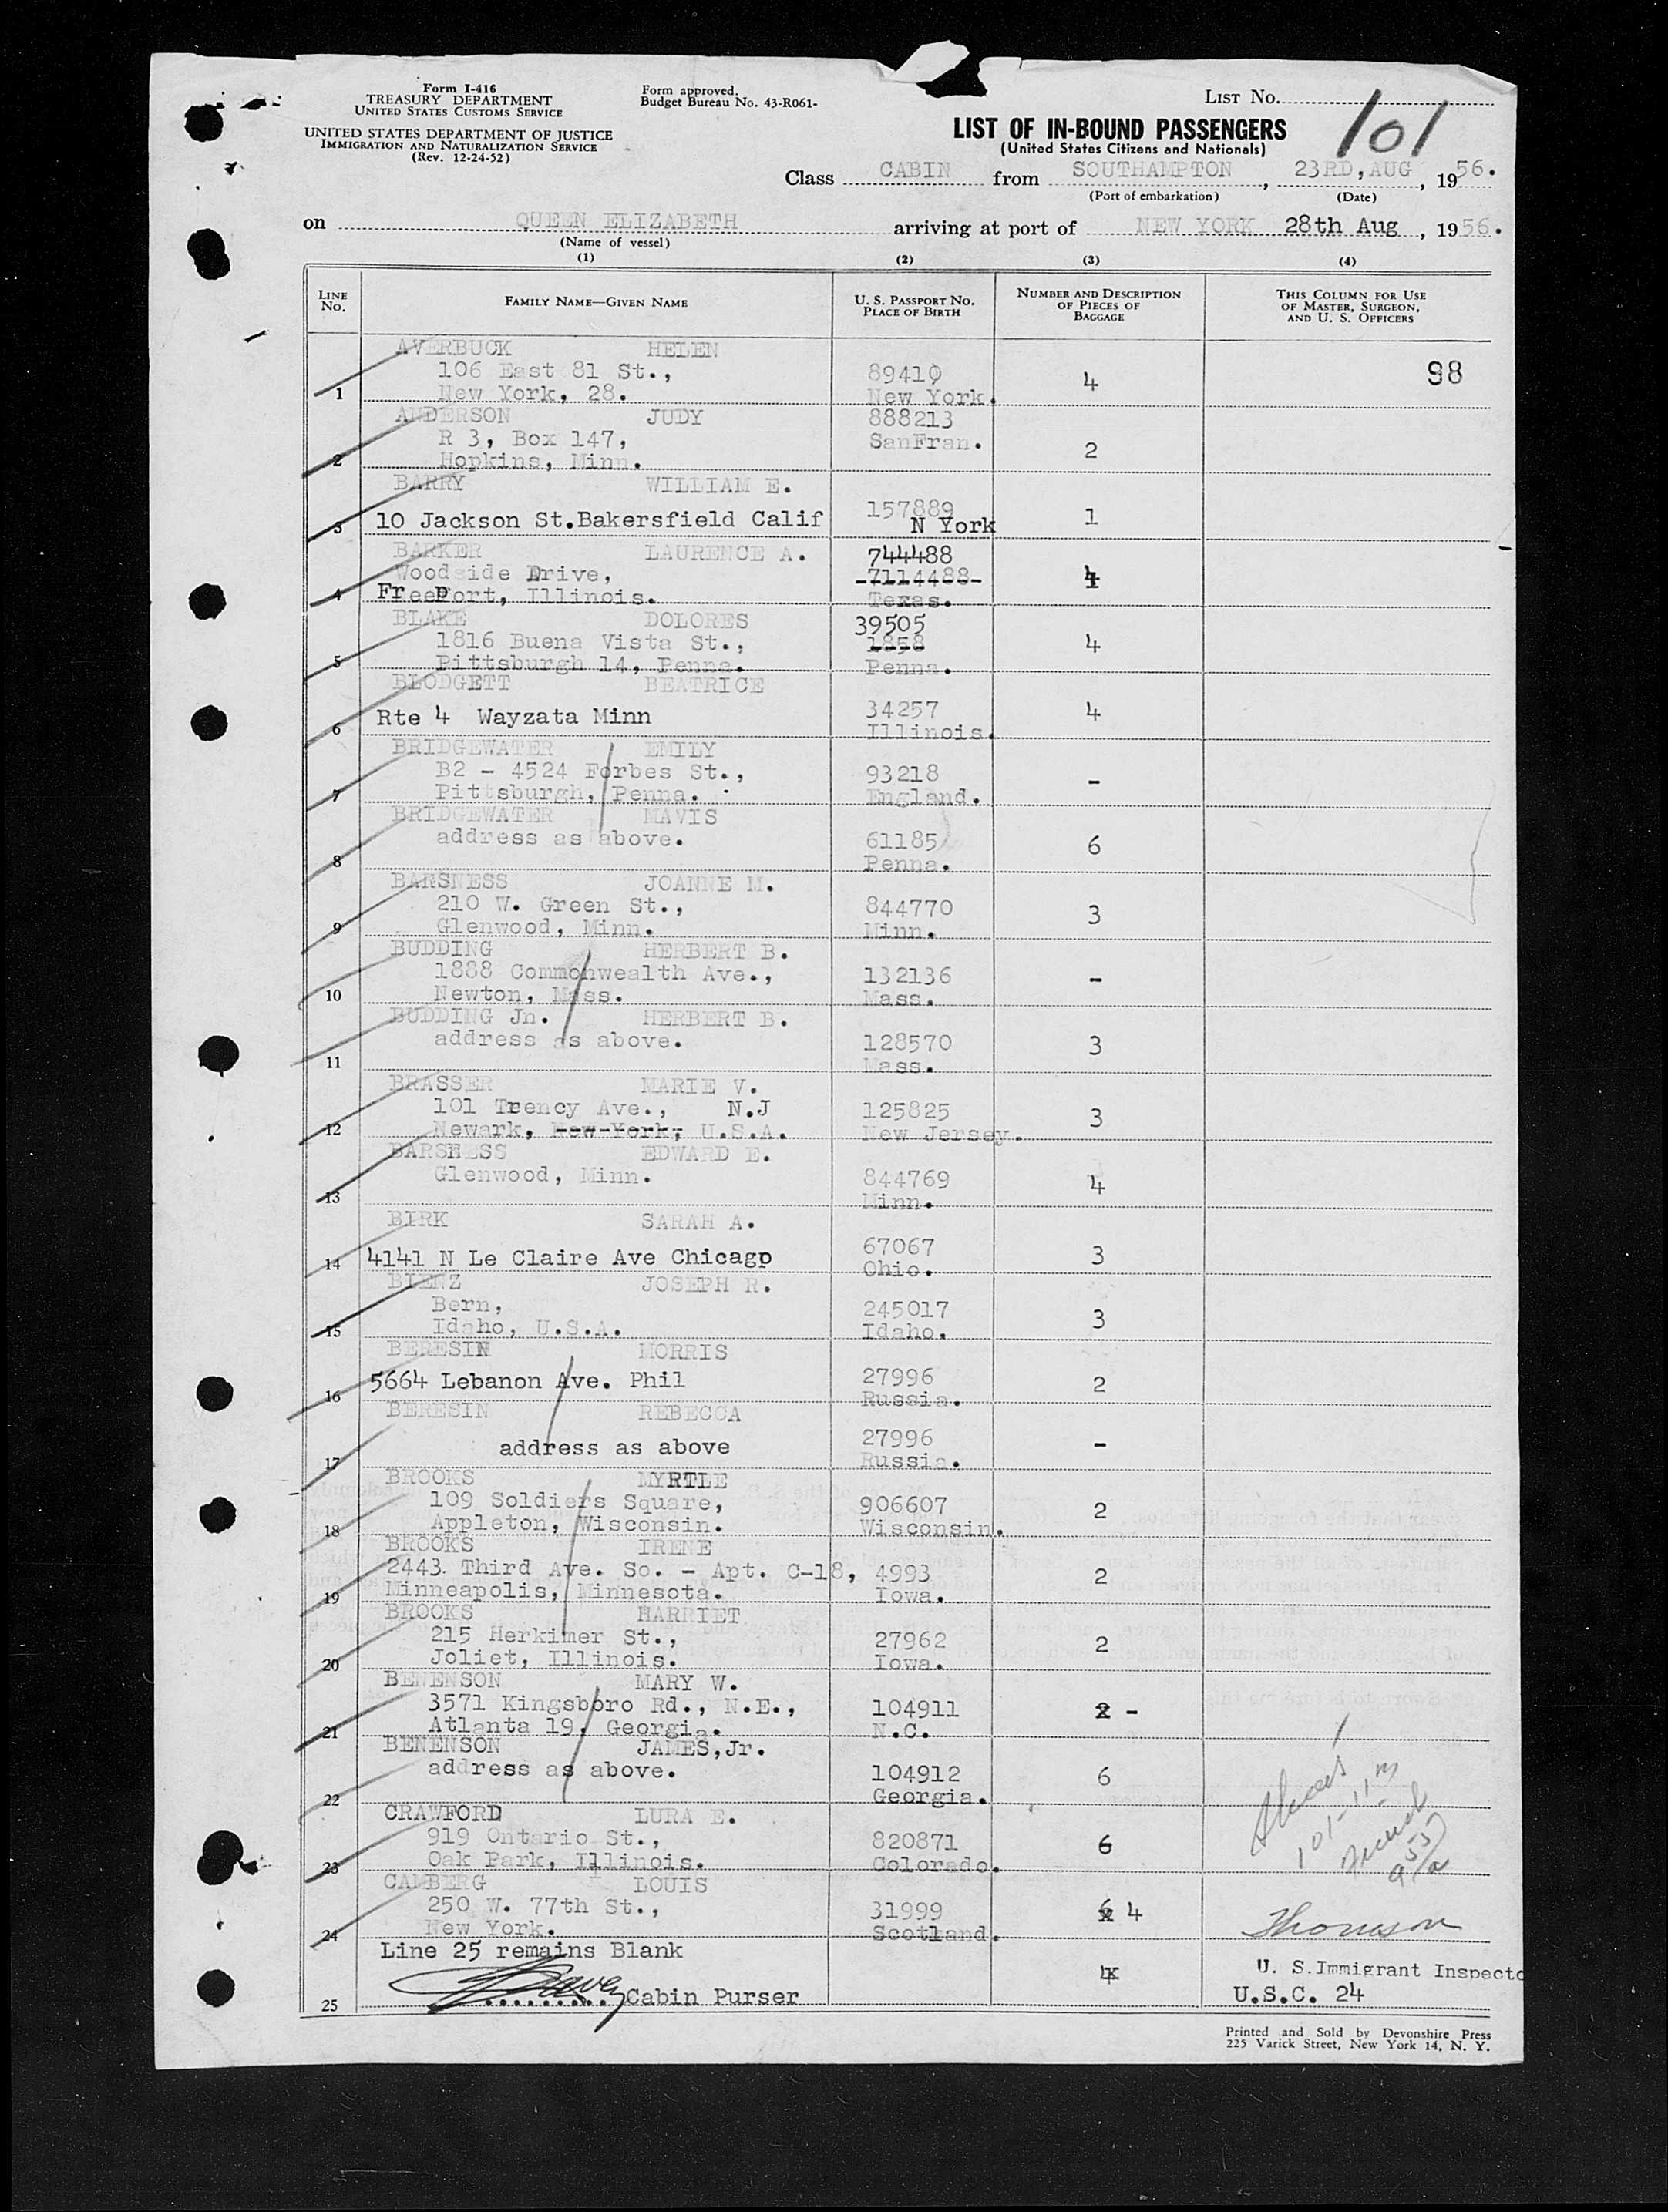 Form I-416
TREASURY DEPARTMENT
UNITED STATES CUSTOMS SERVICE
UNITED STATES DEPARTMENT OF JUSTICE
IMMIGRATION AND NATURALIZATION SERVICE
(Rev. 12-24-52)
Form approved.
Budget Bureau No. 43-R061-
LIST NO. 101
LIST OF IN-BOUND PASSENGERS
(United States Citizens and Nationals)
Class CABIN from SOUTHAMPTON, 23RD, AUG, 1956.
(Port of embarkation) (Date)
on QUEEN ELIZABETH arriving at port of NEW YORK 28th Aug, 1956.
(Name of vessel)
(1) (2) (3) (4)
LINE NO. FAMILY NAME—GIVEN NAME U. S. PASSPORT NO. PLACE OF BIRTH NUMBER AND DESCRIPTION OF PIECES OF BAGGAGE THIS COLUMN FOR USE OF MASTER, SURGEON, AND U. S. OFFICERS
AVERBUCK HELEN
106 East 81 St., 89410 4 98
1 New York, 28. New York.
ANDERSON JUDY 888213
R 3, Box 147, SanFran. 2
2 Hopkins, Minn.
BARRY WILLIAM E.
157889 1
3 10 Jackson St.Bakersfield Calif N York
BARKER LAURENCE A. 744488
Woodside Drive, 7114488 4
4 Freeport, Illinois. Texas.
BLAKE DOLORES 39505
1816 Buena Vista St., 1858 4
5 Pittsburgh 14, Penna. Penna.
BLODGETT BEATRICE
6 Rte 4 Wayzata Minn 34257 4
Illinois.
BRIDGEWATER EMILY
B2 - 4524 Forbes St., 93218 -
7 Pittsburgh, Penna. England.
BRIDGEWATER MAVIS
address as above. 61185 6
8 Penna.
BARSNESS JOANNE M.
210 W. Green St., 844770 3
9 Glenwood, Minn. Minn.
BUDDING HERBERT B.
1888 Commonwealth Ave., 132136 -
10 Newton, Mass. Mass.
BUDDING Jn. HERBERT B.
address as above. 128570 3
11 Mass.
BRASSER MARIE V.
101 Treency Ave., N.J 125825 3
12 Newark, New York, U.S.A. New Jersey.
BARSNESS EDWARD E.
Glenwood, Minn. 844769 4
13 Minn.
BIRK SARAH A.
67067 3
14 4141 N Le Claire Ave Chicago Ohio.
BIENZ JOSEPH R.
Bern, 245017 3
15 Idaho, U.S.A. Idaho.
BERESIN MORRIS
5664 Lebanon Ave. Phil 27996 2
16 Russia.
BERESIN REBECCA
address as above 27996 -
17 Russia.
BROOKS MYRTLE
109 Soldiers Square, 906607 2
18 Appleton, Wisconsin. Wisconsin.
BROOKS IRENE
2443. Third Ave. So. - Apt. C-18, 4993 2
19 Minneapolis, Minnesota. Iowa.
BROOKS HARRIET
215 Herkimer St., 27962 2
20 Joliet, Illinois. Iowa.
BENENSON MARY W.
3571 Kingsboro Rd., N.E., 104911 2 -
21 Atlanta 19, Georgia. N.C.
BENENSON JAMES,Jr.
address as above. 104912 6
22 Georgia.
CRAWFORD LURA E.
919 Ontario St., 820871 6
23 Oak Park, Illinois. Colorado.
CAMBERG LOUIS
250 W. 77th St., 31999 6 4
24 New York. Scotland.
Thomson
Line 25 remains Blank
4 U. S.Immigrant Inspecto
25 Cabin Purser U.S.C. 24
Printed and Sold by Devonshire Press
225 Varick Street, New York 14, N. Y.